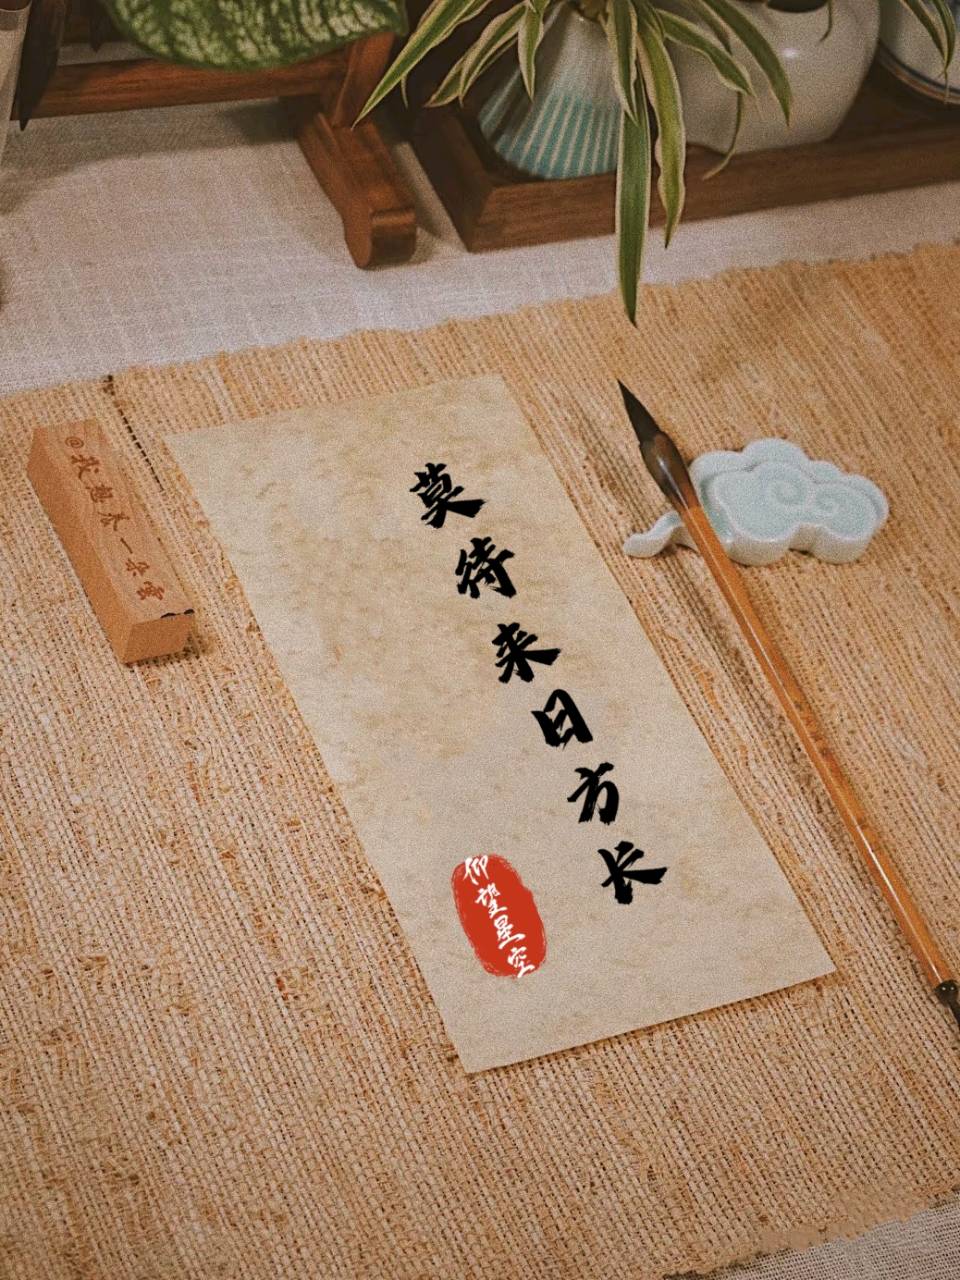 莫待来日方长
仰望星空
@我想养一朵雲